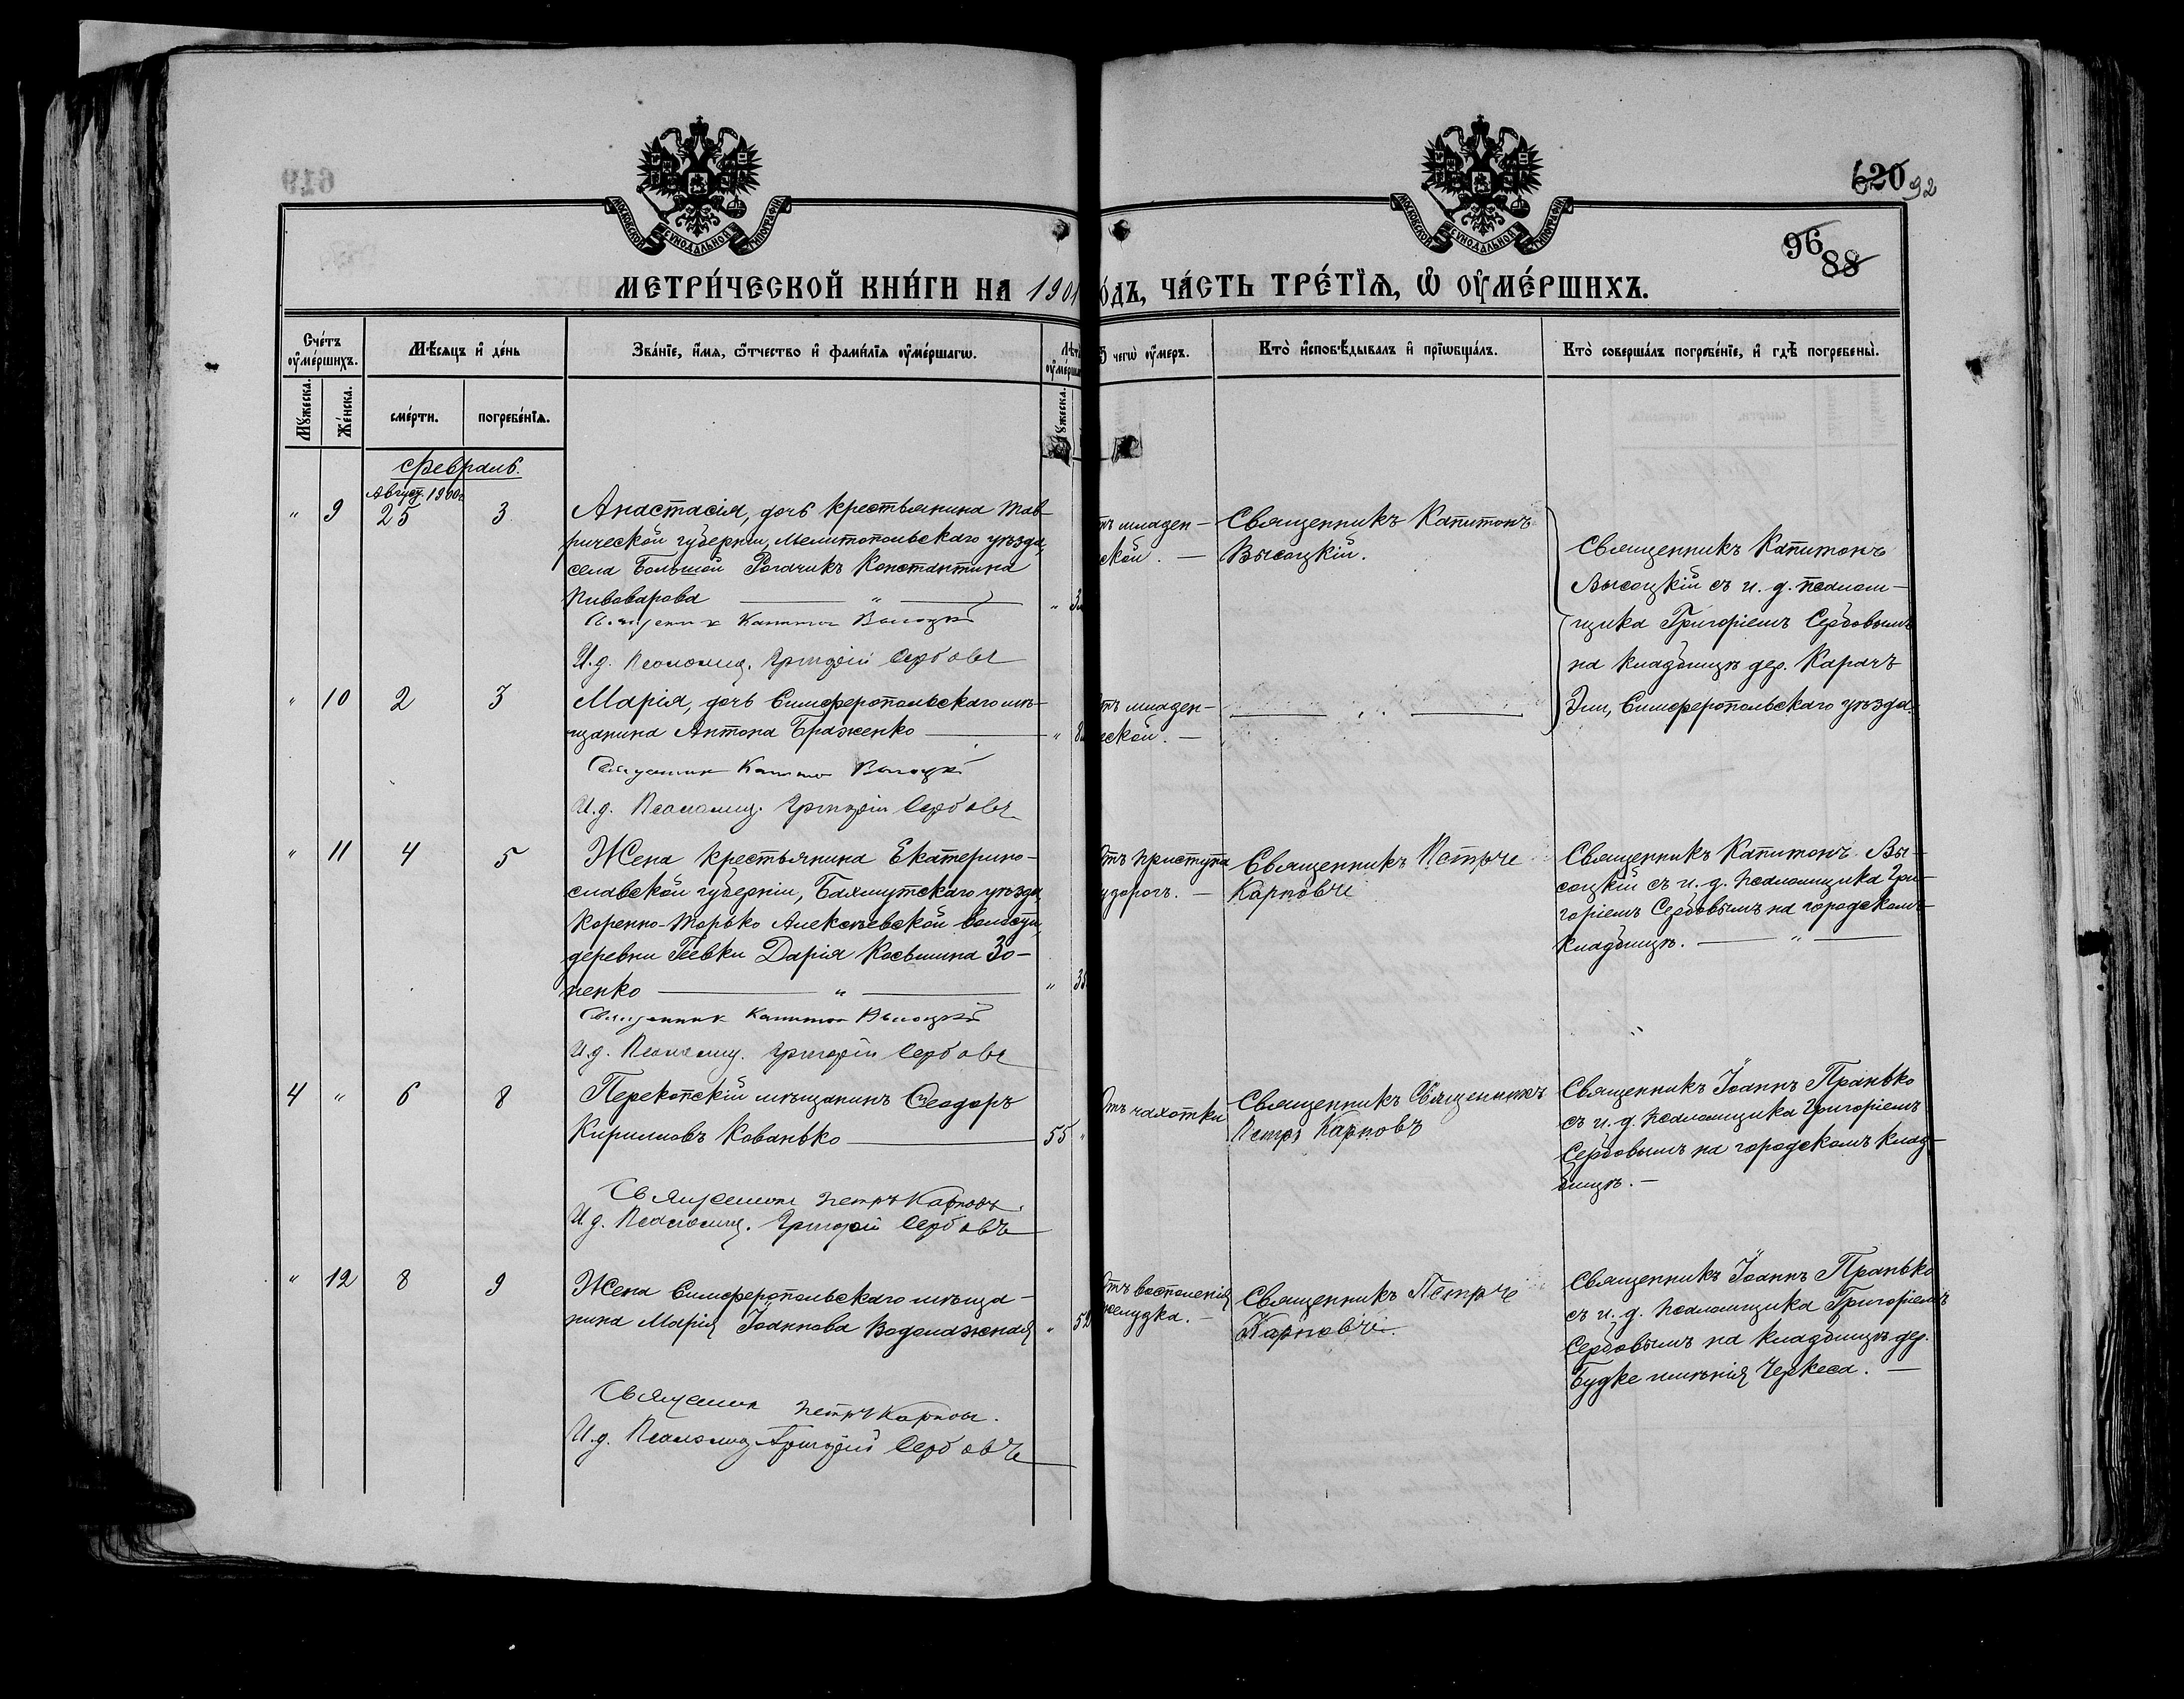 620 92
96
88
МЕТРИ́ЧЕСКОЙ КНИ́ГИ НА 1901
О́ДЪ, ЧА́СТЬ ТРЕ́ТІѦ, Ѡ ОУМЕ́РШИХЪ.
Сче́тъ оумершихъ.
Мѣсяцъ и де́нь
Зва́нїе, и́мя, ѻтчество и фами́лїя оуме́ршагѡ.
чегѡ оумеръ.
Кто̀ исповѣдывалъ и прїѡбща́лъ.
Кто̀ соверша́лъ погребе́нїе, и гдѣ погребены̀.
Мꙋжеска.
Же́нска.
сме́рти.
погребе́нїѧ.
Мꙋжеска.
Февраль.
Август. 1900г
" 9 25 3
Анастасія, дочь крестьянина Тав-
рической губерніи, Мелитопольскаго уѣзда,
села Большой Рогачикъ Константина
Пивоварова — " —
Священник Капитон Высоцкій
И.д. Псаломщ. Григорій Сербовъ
младен-
ской. —
Священникъ Капитонъ
Высоцкій.
Священникъ Капитонъ
Высоцкій съ и. д. псалом-
щика Григоріемъ Сербовымъ
на кладбищѣ дер. Карачъ
Эли, Симферопольскаго уѣзда.
" 10 2 3
Марія, дочь Симферопольскаго мѣ-
щанина Антона Браженко —
Священник Капитон Высоцкій
И.д. Псаломщ. Григорій Сербовъ
младен-
ской. —
— " —
" 11 4 5
Жена крестьянина Екатерино-
славской губерніи, Бахмутскаго уѣзда,
Коренно-Торько Алексѣевской волости,
деревни Геевки Дарія Косьмина Зо-
ненко — " —
" 35
Священник Капитон Высоцкій
И.д. Псаломщ. Григорій Сербовъ
Отъ приступа
удорогъ. —
Священникъ Петръ
Карповъ
Священникъ Капитонъ Вы-
соцкій съ и. д. псаломщика Гри-
горіемъ Сербовымъ на городскомъ
кладбищѣ. — " —
4 " 6 8
Перекопскій мѣщанинъ Ѳеодоръ
Кирилловъ Кованько —
55 "
Священник Петръ Карповъ.
И.д. Псаломщ. Григорій Сербовъ
Отъ чахотки
Священникъ Священникъ
Петръ Карповъ
Священникъ Іоаннъ Пранько
съ и. д. псаломщика Григоріемъ
Сербовымъ на городскомъ клад-
бищѣ. —
" 12 8 9
Жена Симферопольскаго мѣща-
нина Марія Іоаннова Водолажная
" 52
Священник Петръ Карповъ.
И.д. Псаломщ. Григорій Сербовъ
Отъ воспаленія
желудка. —
Священникъ Петръ
Карповъ.
Священникъ Іоаннъ Пранько
съ и. д. псаломщика Григоріемъ
Сербовымъ на кладбищѣ дер.
Будке имѣнія Черкеса. —